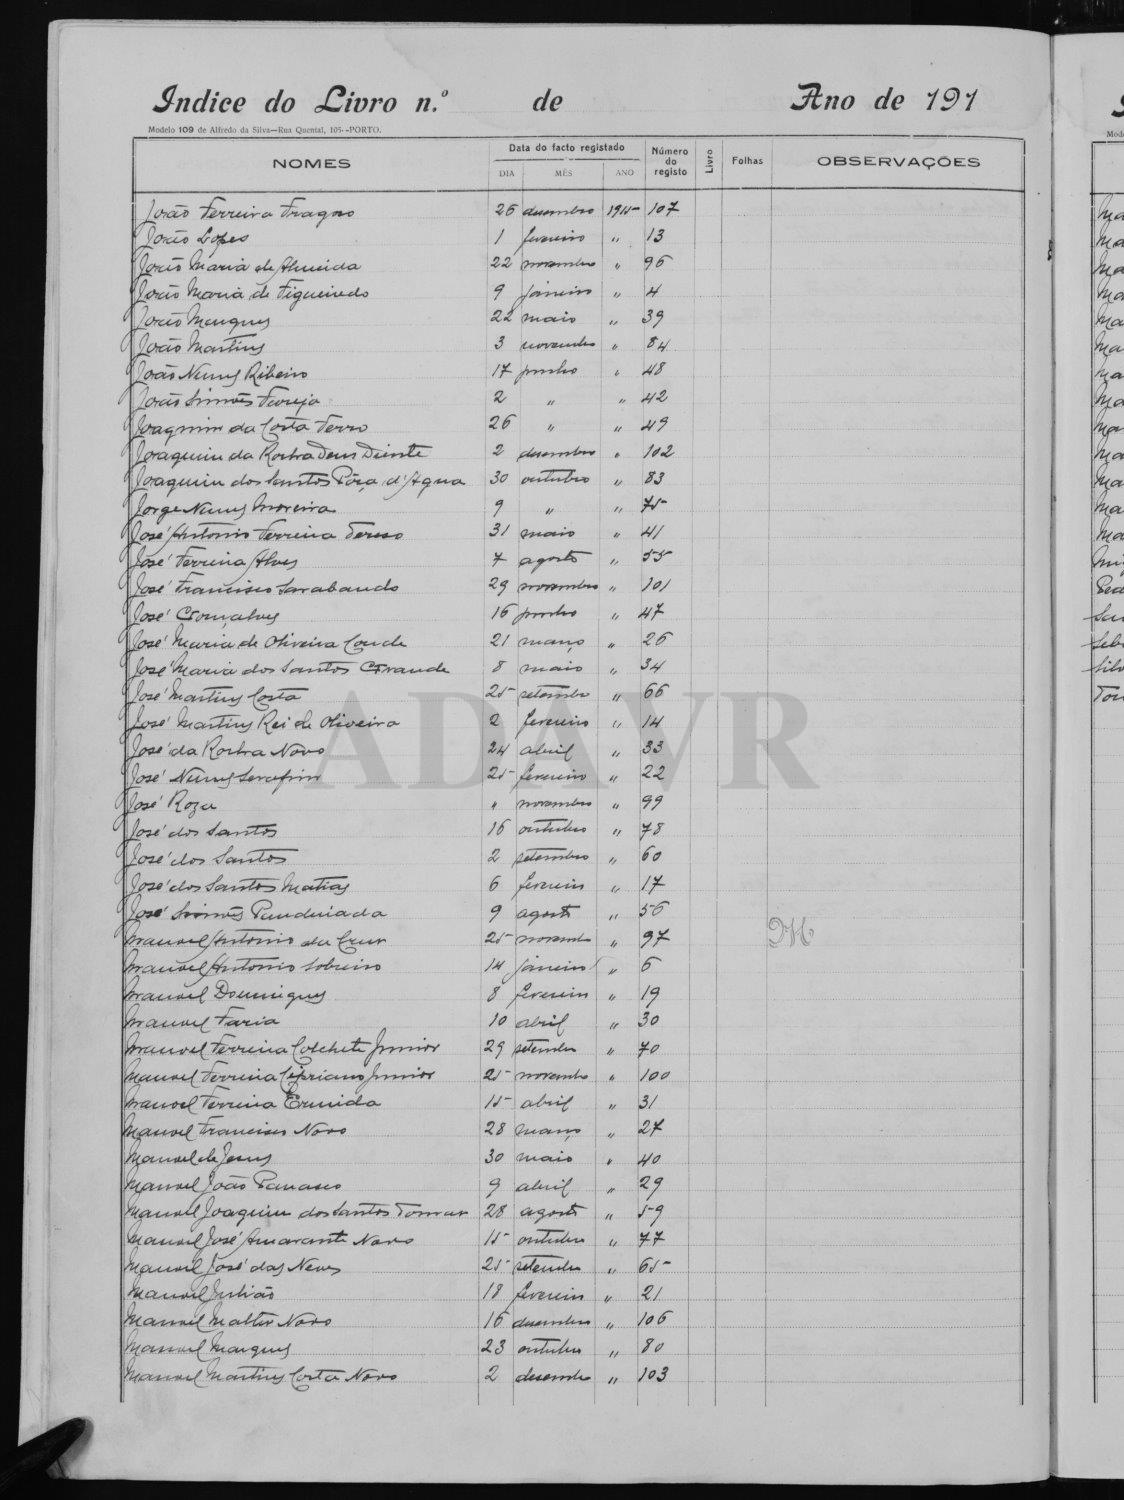 Indice do Livro n.º de Ano de 191
Modelo 109 de Alfredo da Silva—Rua Quental, 105--PORTO.
NOMES Data do facto registado Número do registo Livro Folhas OBSERVAÇÕES
DIA MÊS ANO
João Ferreira Fragoso 26 desembro 1915 107
João Lopes 1 fevereiro " 13
João Maria de Almeida 22 novembro " 96
João Maria de Figueiredo 9 janeiro " 4
João Marques 22 maio " 39
João Martins 3 novembro " 84
João Nunes Ribeiro 17 junho " 48
João Simões Tareja 2 " " 42
Joaquim da Costa Ferro 26 " " 49
Joaquim da Rocha Deus Diente 2 desembro " 102
Joaquim dos Santos Pôça d'Agua 30 outubro " 83
Jorge Nunes Moreira 9 " " 75
José Antonio Ferreira Tereso 31 maio " 41
José Ferreira Alves 7 agosto " 55
José Francisco Sarabando 29 novembro " 101
José Gonçalves 16 junho " 47
José Maria de Oliveira Conde 21 março " 26
José Maria dos Santos Grande 8 maio " 34
José Martins Costa 25 setembro " 66
José Martins Rei de Oliveira 2 fevereiro " 14
José da Rocha Novo 24 abril " 33
José Nunes Serafim 25 fevereiro " 22
José Roza " novembro " 99
José dos Santos 16 outubro " 78
José dos Santos 2 setembro " 60
José dos Santos Matias 6 fevereiro " 17
José Simões 9 agosto " 56
Manoel Antonio da Cruz 25 novembro " 97
Manoel Antonio Sobreiro 14 janeiro " 6
Manoel Domingues 8 fevereiro " 19
Manoel Faria 10 abril " 30
Manoel Ferreira Colchete Junior 29 setembro " 70
Manoel Ferreira Cipriano Junior 25 novembro " 100
Manoel Ferreira Ermida 15 abril " 31
Manoel Francisco Novo 28 março " 27
Manoel de Jesus 30 maio " 40
Manoel João Panasco 9 abril " 29
Manoel Joaquim dos Santos Tomar 28 agosto " 59
Manoel José Amarante Novo 15 outubro " 77
Manoel José das Neves 25 setembro " 65
Manoel Julião 18 fevereiro " 21
Manoel Malter Novo 16 desembro " 106
Manoel Marques 23 outubro " 80
Manoel Martins Costa Novo 2 desembro " 103
ADAVR